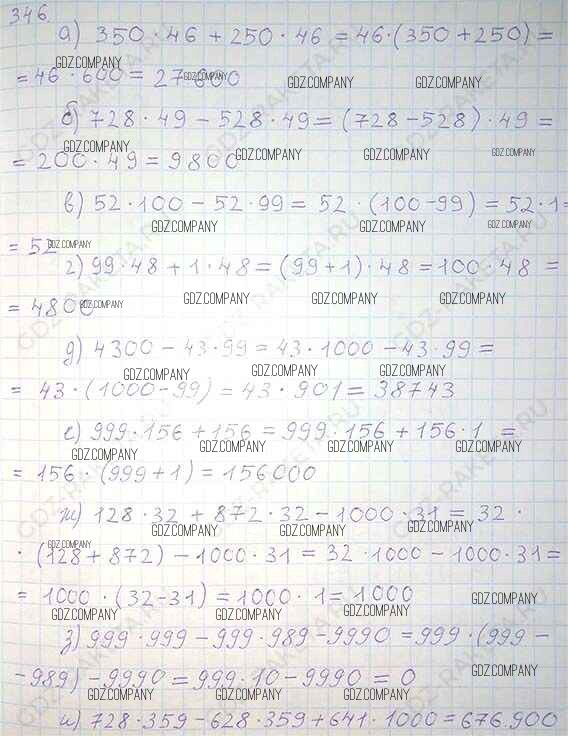 346.
а) 350 · 46 + 250 · 46 = 46 · (350 + 250) =
= 46 · 600 = 27600
б) 728 · 49 – 528 · 49 = (728 – 528) · 49 =
= 200 · 49 = 9800
в) 52 · 100 – 52 · 99 = 52 · (100 – 99) = 52 · 1 =
= 52
г) 99 · 48 + 1 · 48 = (99 + 1) · 48 = 100 · 48 =
= 4800
д) 4300 – 43 · 99 = 43 · 1000 – 43 · 99 =
= 43 · (1000 – 99) = 43 · 901 = 38743
е) 999 · 156 + 156 = 999 · 156 + 156 · 1 =
= 156 · (999 + 1) = 156000
ж) 128 · 32 + 872 · 32 – 1000 · 31 = 32 ·
· (128 + 872) – 1000 · 31 = 32 · 1000 – 1000 · 31 =
= 1000 · (32 – 31) = 1000 · 1 = 1000
з) 999 · 999 – 999 · 989 – 9990 = 999 · (999 –
– 989) – 9990 = 999 · 10 – 9990 = 0
и) 728 · 359 – 628 · 359 + 641 · 1000 = 676.900
GDZ.COMPANY
GDZ-RAKETA.RU